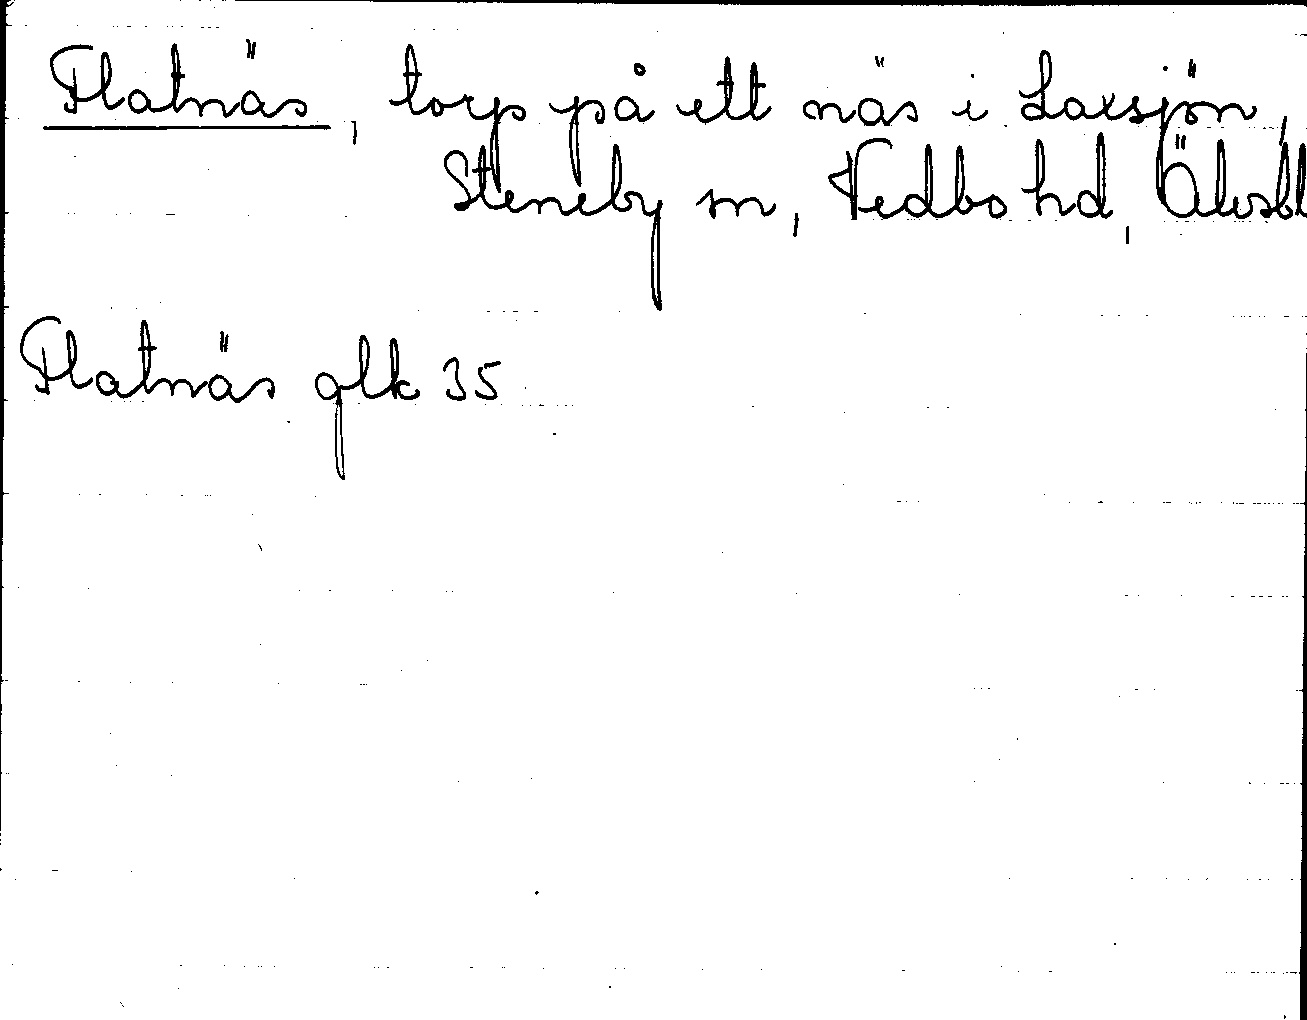 Platnäs, torp på ett näs i Laxsjön,
Steneby sn, Vedbo hd, Älvsbl
Platnäs glk 35